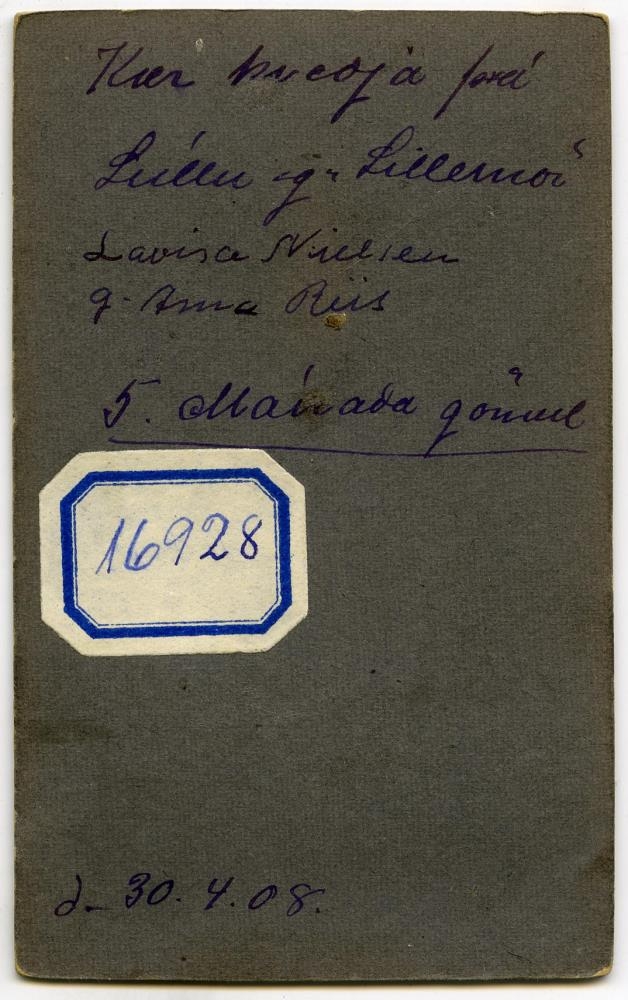 Kær kvedja frá
Lúllu og "Lillemor"
Lovisa Nielsen
og Anna Riis
5. Mánaða gömul
16928
d. 30. 4. 08.